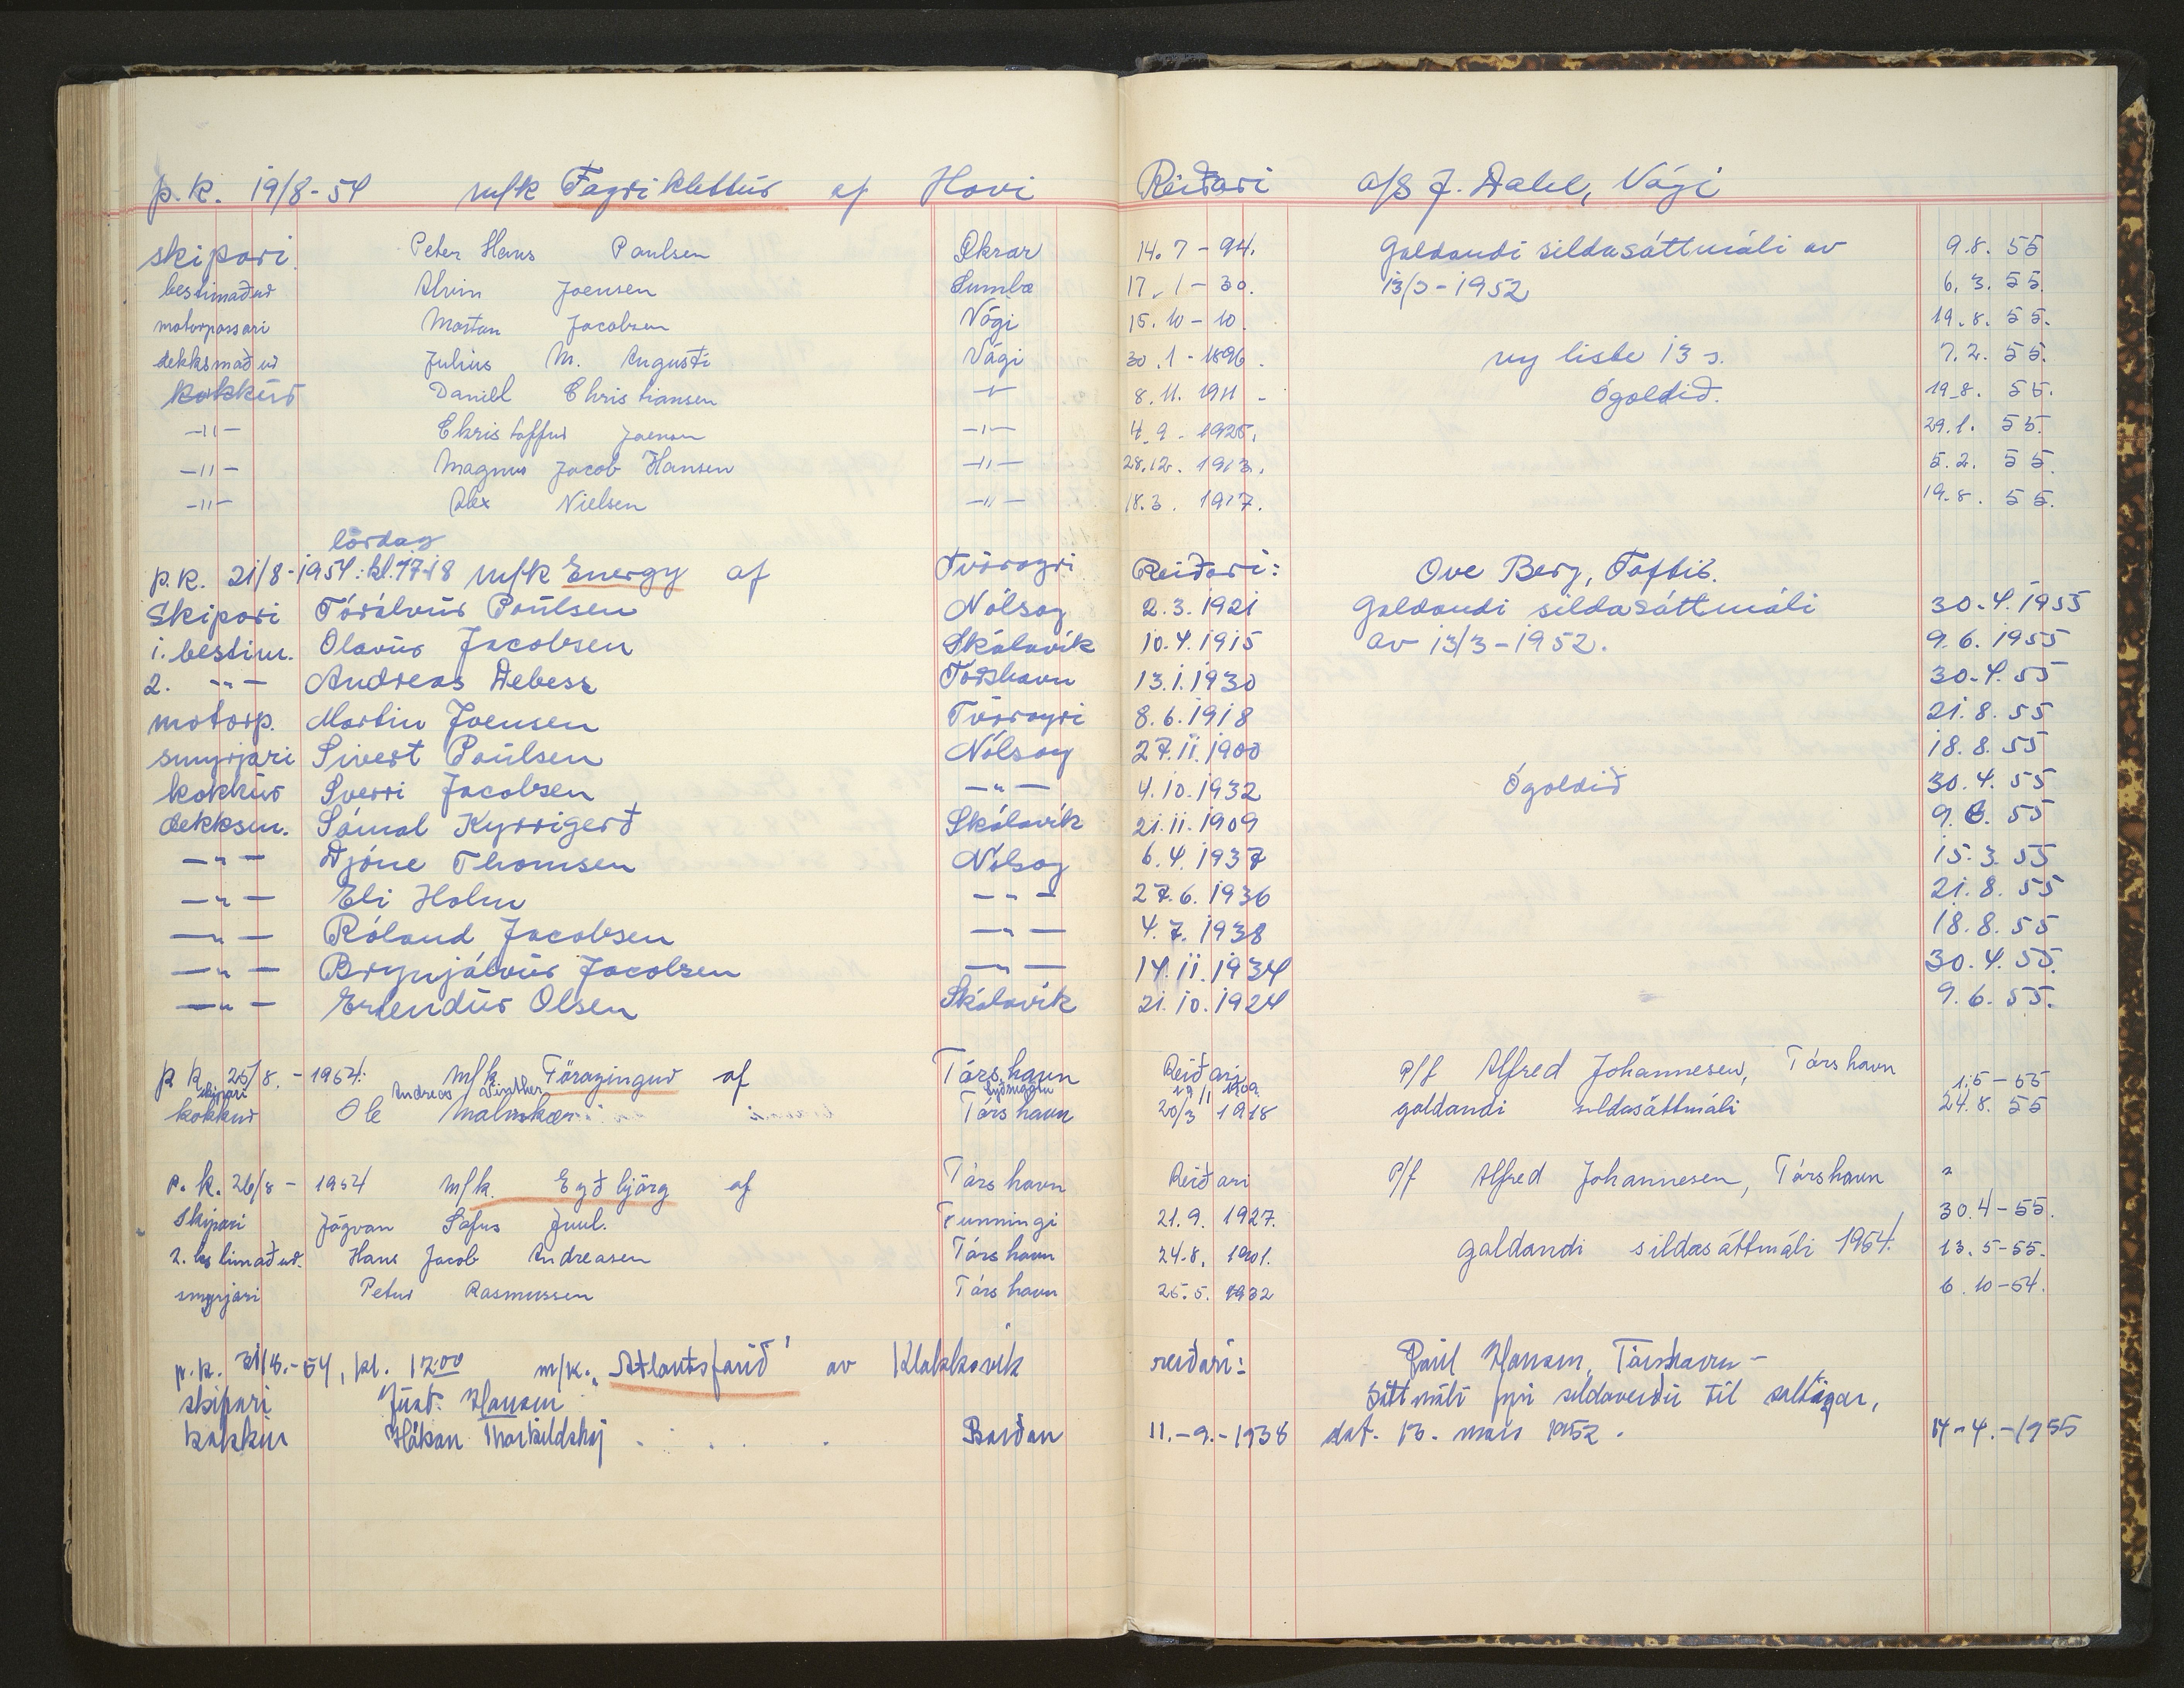 p.k. 19/8-54 m/k Fagriklettur af Hovi Reiðari a/s J. Dahl, Vági
skipari Peter Hans Poulsen Akrar 14.7-94. Galdandi sildasáttmáli av 9.8. 55
bestimaður Alvin Joensen Sumba 17.1-30. 13/3-1952 6.3. 55.
motorpassari Mortan Jacobsen Vági 15.10-10. 19.8. 55.
dekksmaður Julius M. Augusti Vági 30.1-1896. ny liste 13 s. 7.2. 55.
kokkur Daniel Christiansen -"- 8.11. 1911 - Ógoldið. 19.8. 55.
-"- Christoffur Joensen -"- 4.9. 1925. 29.1. 55.
-"- Magnus Jacob Hansen -"- 28.12. 1913. 5.2. 55.
-"- Alex Nielsen -"- 18.3. 1917. 19.8. 55.
lördag
p.k. 21/8-1954: kl. 17-18 m/k Energy af Tvöroyri Reiðari: Ove Berg, Toftir.
Skipari Tórálvur Poulsen Nólsoy 2.3.1921 Galdandi sildasáttmáli 30.4.1955
1. bestim. Olavur Jacobsen Skálavík 10.4.1915 av 13/3-1952. 9.6.1955
2. -"- Andreas Debess Tórshavn 13.1.1930 30.4.55
motorp. Martin Joensen Tvöroyri 8.6.1918 21.8.55
smyrjari Sivert Poulsen Nólsoy 27.11.1900 18.8.55
kokkur Sverri Jacobsen -"- 4.10.1932 Ógoldið 30.4.55
dekksm. Sámal Kyrrigerð Skálavík 21.11.1909 9.6.55
-"- Djóne Thomsen Nólsoy 6.4.1937 15.3.55
-"- Eli Holm -"- 27.6.1936 21.8.55
-"- Róland Jacobsen -"- 4.7.1938 18.8.55
-"- Brynjálvur Jacobsen -"- 14.11.1934 30.4.55.
-"- Erlendur Olsen Skálavík 21.10.1924 9.6.55.
p.k. 25/8.-1954: m/k Föroyingur af Tórshavn Reiðari P/f Alfred Johannesen, Tórshavn
skipari Andreas Winther 29/11 1909 1.5-55
kokkur Ole Malmskær Tórshavn 20/3 1918 galdandi sildasáttmáli 24.8. 55
p.k. 26/8-1954 m/k Eyðbjörg af Tórshavn Reiðari P/f Alfred Johannesen, Tórshavn
Skipari Jógvan Sofus Juul. Funningi 21.9. 1927. 30.4-55.
2. bestimaður. Hans Jacob Andreasen Tórshavn 24.8. 1901. galdandi sildasáttmáli 1954. 13.5-55.
smyrjari Petur Rasmussen Tórshavn 25.5. 1932 6.10-54.
p.k. 31/8.-54, kl. 12.00 m/k. "Atlantsfarið" av Klakksvík reiðari: Poul Hansen, Tórshavn -
skipari Just. Hansen Sáttmáli fyri sildaveiði til saltingar,
kokkur Hákan Thorkildshøj Borðan 11.-9.-1938 dat. 13. mars 1952. 14-4.-1955